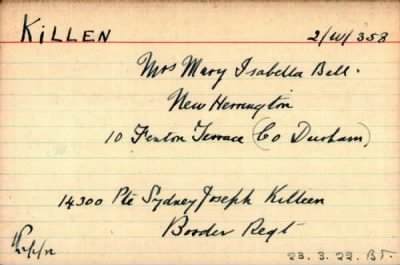 KiLLEN 2/W/358
Mrs Mary Isabella Bell.
New Herrington
10 Fenton Terrace (Co Durham)
14300 Pte Sydney Joseph Killeen
Border Regt
23.3.22. BT.